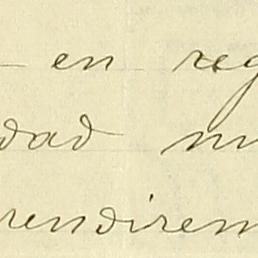 en reg
dad m
rendirem